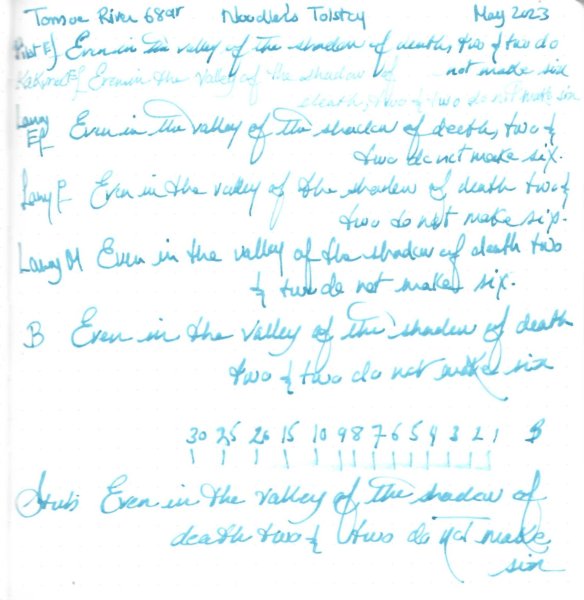 Tomoe River 68gr Noodler's Tolstoy May 2023
Pilot Ef Even in the valley of the shadow of death, two & two do
not make six
Kakuno Ef Even in the valley of the shadow of
death, two & two do not make six
Lamy Ef Even in the valley of the shadow of death, two &
two do not make six.
Lamy F Even in the valley of the shadow of death two &
two do not make six.
Lamy M Even in the valley of the shadow of death two
& two do not make six.
B Even in the valley of the shadow of death
two & two do not make six
30 25 20 15 10 9 8 7 6 5 4 3 2 1 B
Stub Even in the valley of the shadow of
death two & two do not make
six